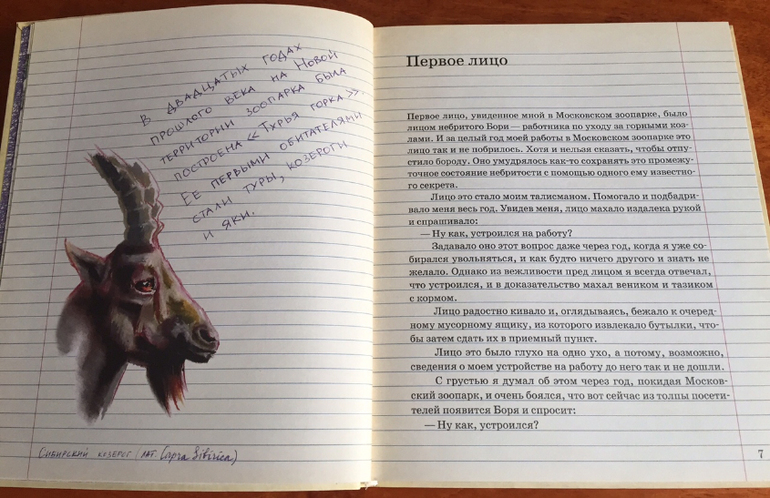 В двадцатых годах
прошлого века на Новой
территории зоопарка была
построена «Турья горка».
Ее первыми обитателями
стали туры, козероги
и яки.
Сибирский козерог (лат Capra Sibirica)
Первое лицо
Первое лицо, увиденное мной в Московском зоопарке, было
лицом небритого Бори — работника по уходу за горными коз-
лами. И за целый год моей работы в Московском зоопарке это
лицо так и не побрилось. Хотя и нельзя сказать, чтобы отпу-
стило бороду. Оно умудрялось как-то сохранять это промежу-
точное состояние небритости с помощью одного ему известно-
го секрета.
Лицо это стало моим талисманом. Помогало и подбадри-
вало меня весь год. Увидев меня, лицо махало издалека рукой
и спрашивало:
— Ну как, устроился на работу?
Задавало оно этот вопрос даже через год, когда я уже со-
бирался увольняться, и как будто ничего другого и знать не
желало. Однако из вежливости пред лицом я всегда отвечал,
что устроился, и в доказательство махал веником и тазиком
с кормом.
Лицо радостно кивало и, оглядываясь, бежало к очеред-
ному мусорному ящику, из которого извлекало бутылки, что-
бы затем сдать их в приемный пункт.
Лицо это было глухо на одно ухо, а потому, возможно,
сведения о моем устройстве на работу до него так и не дошли.
С грустью я думал об этом через год, покидая Москов-
ский зоопарк, и очень боялся, что вот сейчас из толпы посети-
телей появится Боря и спросит:
— Ну как, устроился?
7